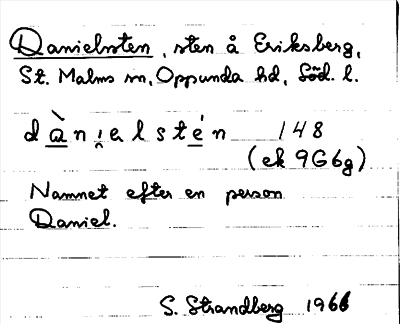 Danielsten, sten å Eriksberg,
St. Malms sn, Oppunda hd, Söd. l.
dàni̯elstén 148
(ek 9G6g)
Namnet efter en person
Daniel.
S. Strandberg 1966